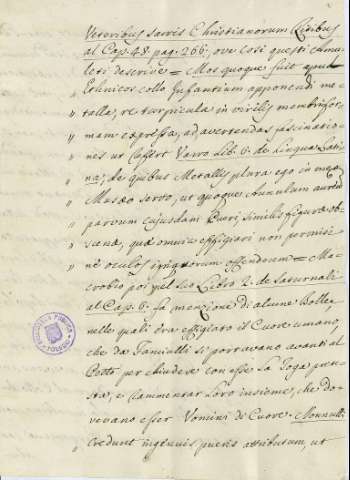 Veteribus sacris Christianorum Ritibus
al Cap. 48. pag. 266, ove così questi Amu-
leti descrive = Mos quoque fuit apud
Ethnicos collo Infantium apponendi me-
talla, re turpicula in virilis membri for-
mam expressa, ad avertendas fascinatio-
nes ut assert Varro Lib. 6. de Lingua Lati-
na; de quibus Metallis plura ego in
Musæo servo, ut quoque Annulum aureum
parvum cujusdam Pueri, similis figuræ ob-
scenæ, quæ omnia effigiari non permisi
nè oculos ignarorum offenderem = Ma-
crobio poi nel suo Libro 2. de Saturnali
al Cap. 6. fa menzione di alcune Bolle,
nelle quali era effigiato il Cuore umano,
che da Fanciulli si portavano avanti al
Petto per chiudere con esse la Toga pre-
sta, e rammentar Loro insieme, che do-
vevano esser Uomini di Cuore. Nonnulli
credunt ingenuis pueris attributum, ut
BIBLIOTECA PUBLICA TOLEDO